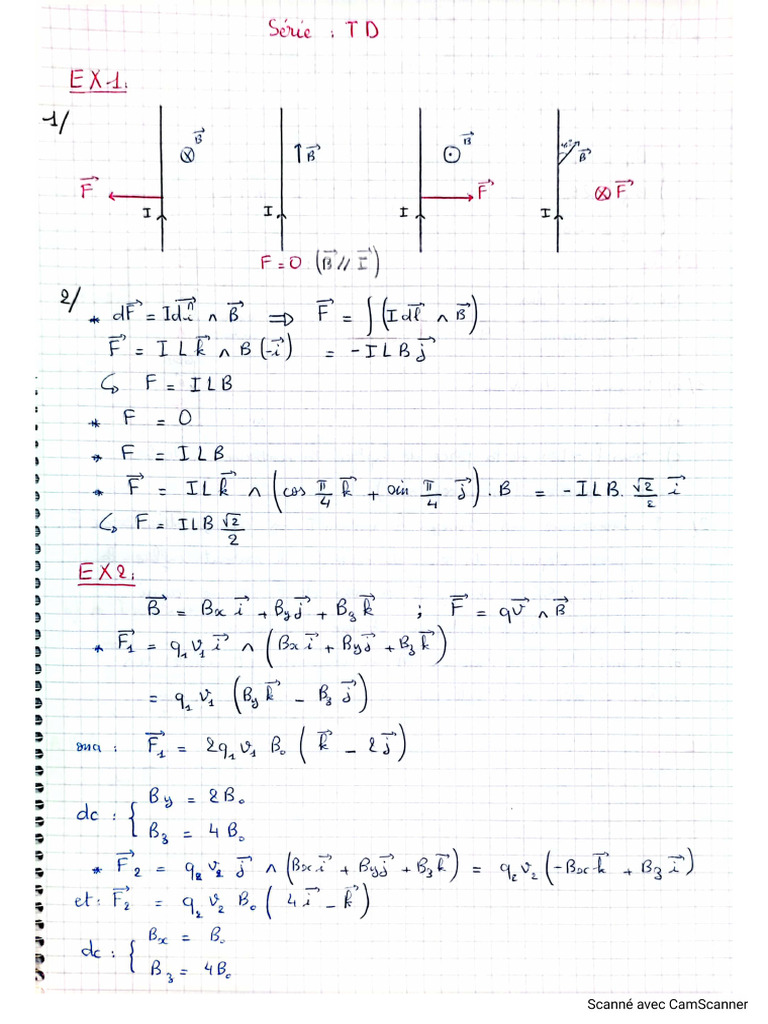 Série : TD
EX1:
1/
⊗ B⃗ ↑B⃗ ⊙ B⃗ B⃗
F⃗ F⃗ ⊗F⃗
I I I I
F = 0 (B⃗ // I⃗)
2/ * dF⃗ = Id ∧ B⃗ ⇒ F⃗ = ∫(I dl⃗ ∧ B⃗)
F⃗ = I L k⃗ ∧ B(-i⃗) = - I L B j⃗
↳ F = I L B
* F = 0
* F = I L B
* F⃗ = I L k⃗ ∧ (cos π/4 k⃗ + sin π/4 j⃗) . B = - I L B. √2/2 i⃗
↳ F = I L B √2/2
EX2:
B⃗ = Bx i⃗ + By j⃗ + Bz k⃗ ; F⃗ = qv⃗ ∧ B⃗
* F⃗₁ = q₁ v₁ i⃗ ∧ (Bx i⃗ + By j⃗ + Bz k⃗)
= q₁ v₁ (By k⃗ - Bz j⃗)
ona : F⃗₁ = 2q₁ v₁ B₀ ( k⃗ - 2 j⃗)
dc : { By = 2B₀
Bz = 4B₀
* F⃗₂ = q₂ v₂ j⃗ ∧ (Bx i⃗ + By j⃗ + Bz k⃗) = q₂ v₂ (-Bx k⃗ + Bz i⃗)
et : F⃗₂ = q₂ v₂ B₀ ( 4 i⃗ - k⃗)
dc : { Bx = B₀
Bz = 4B₀
Scanné avec CamScanner